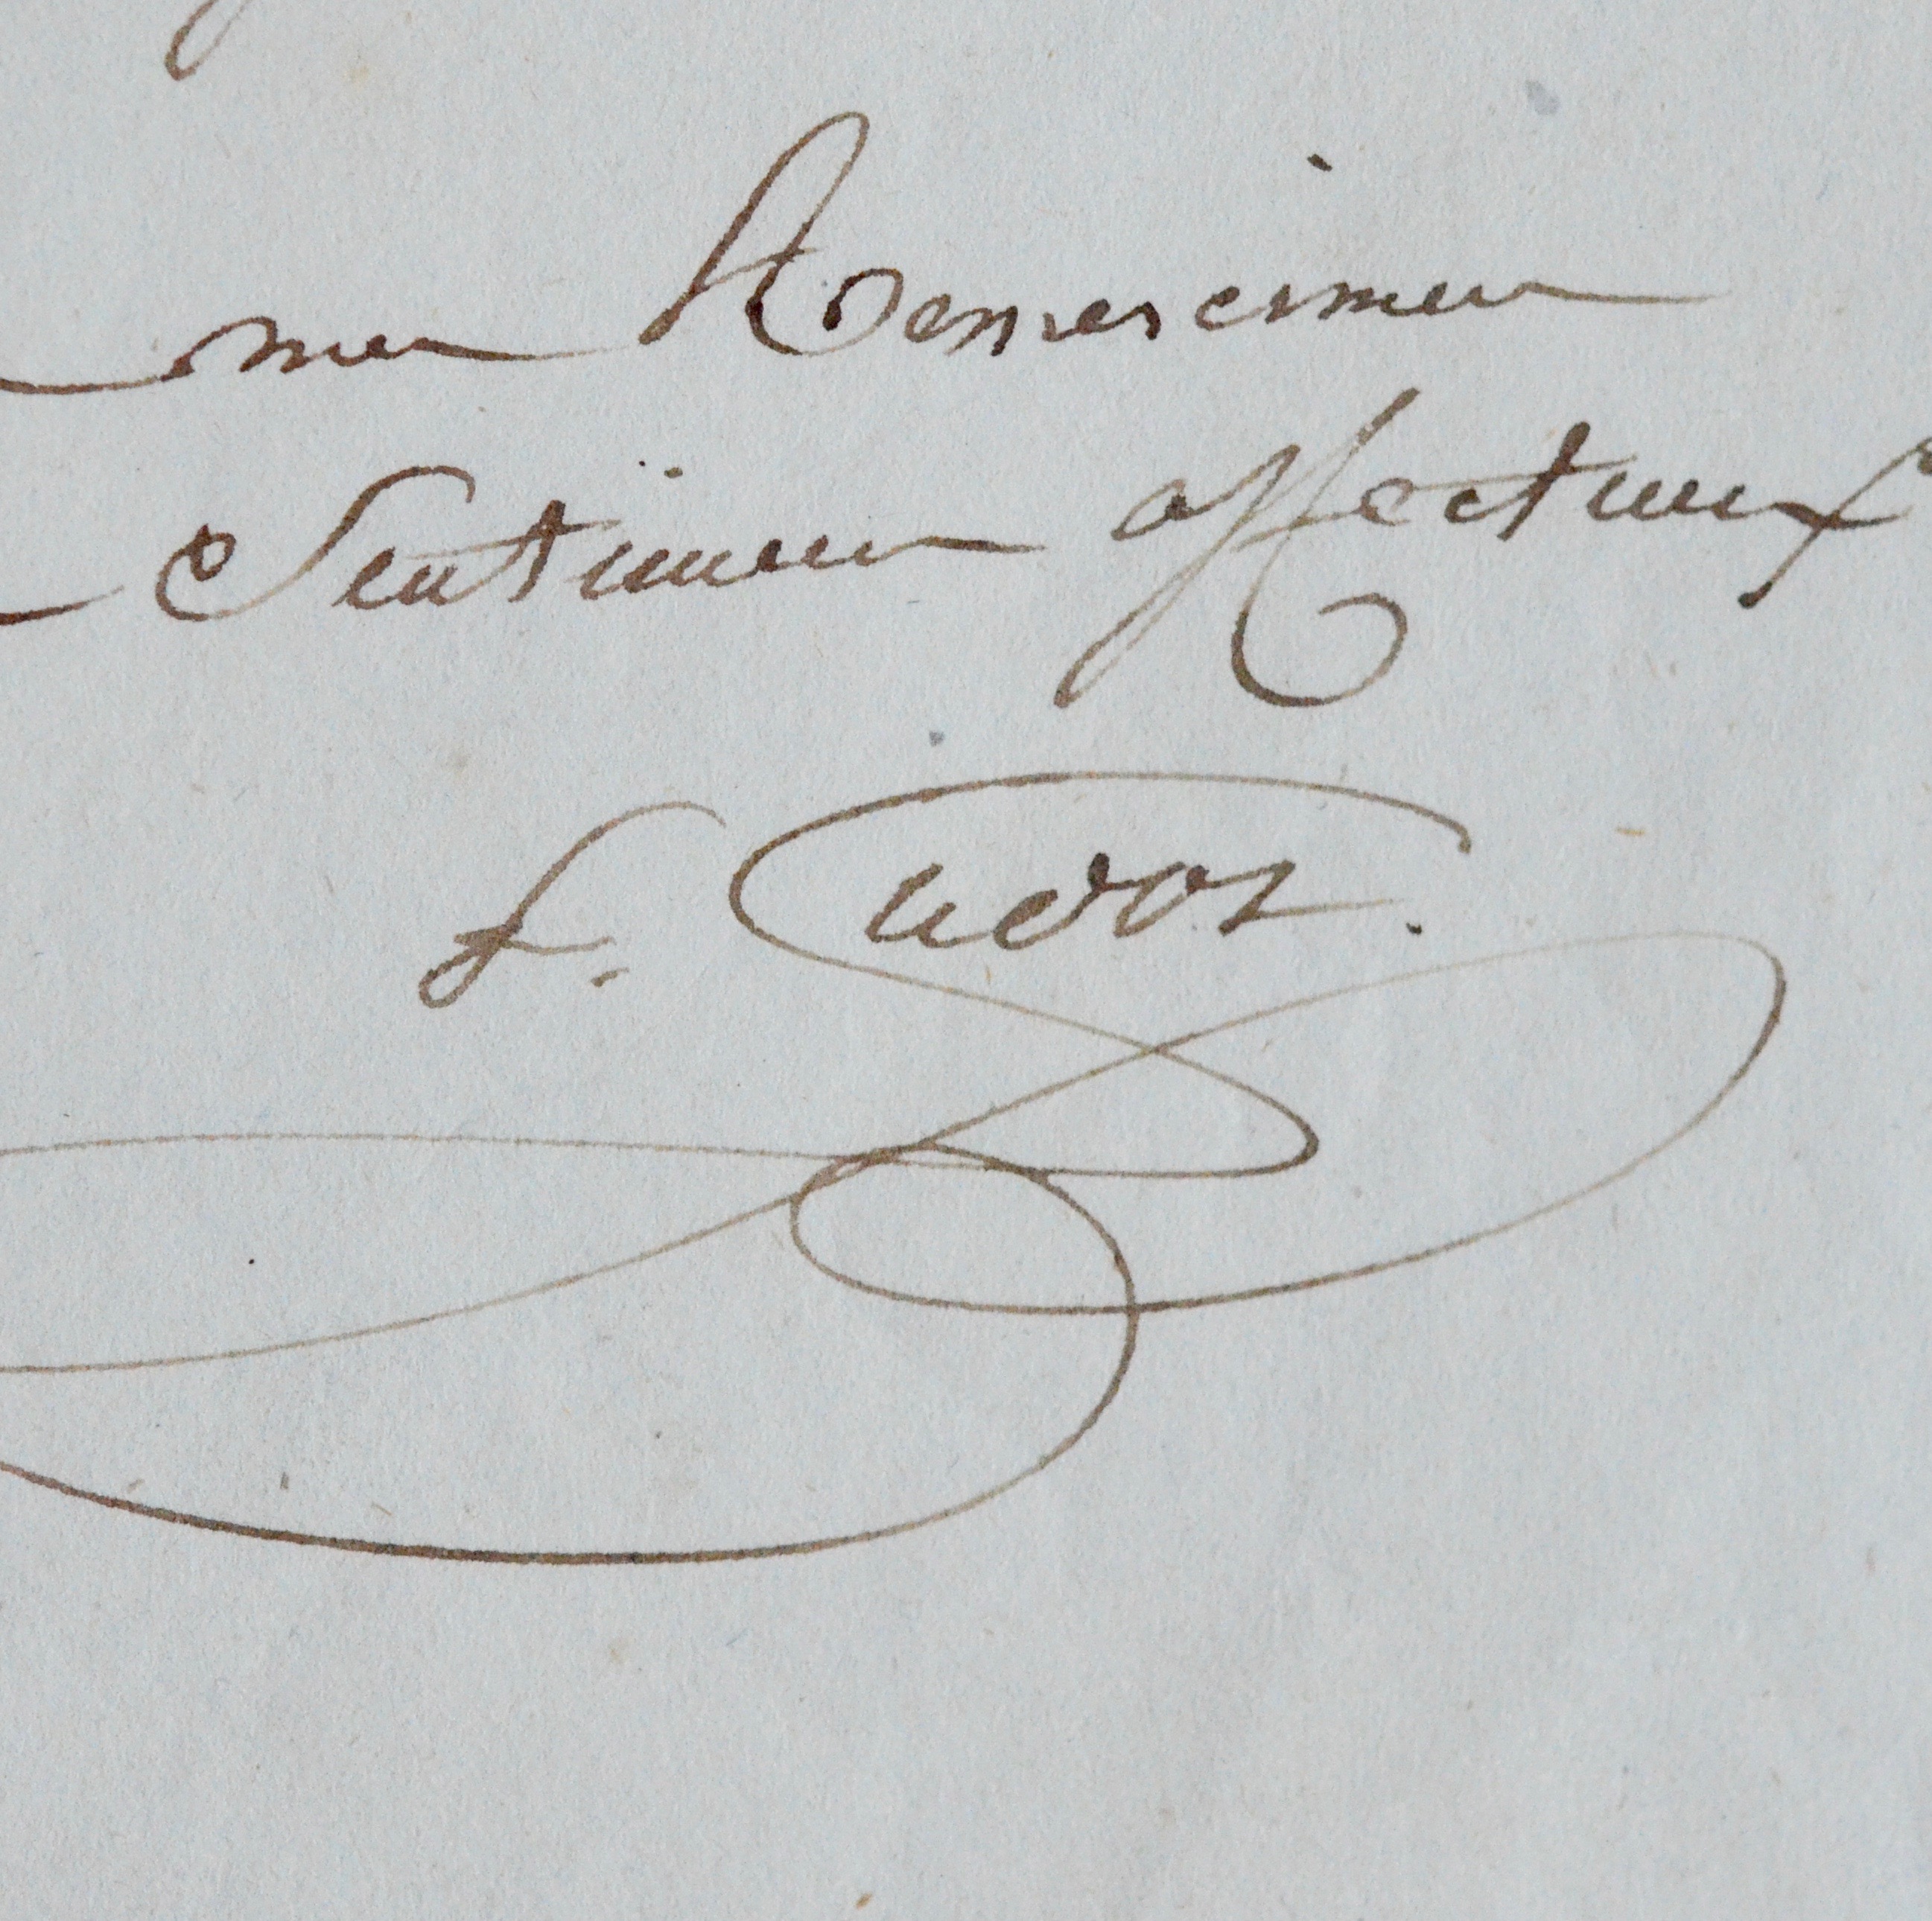 mes Remercimens
Sentimens affectueux
f. Cudot.